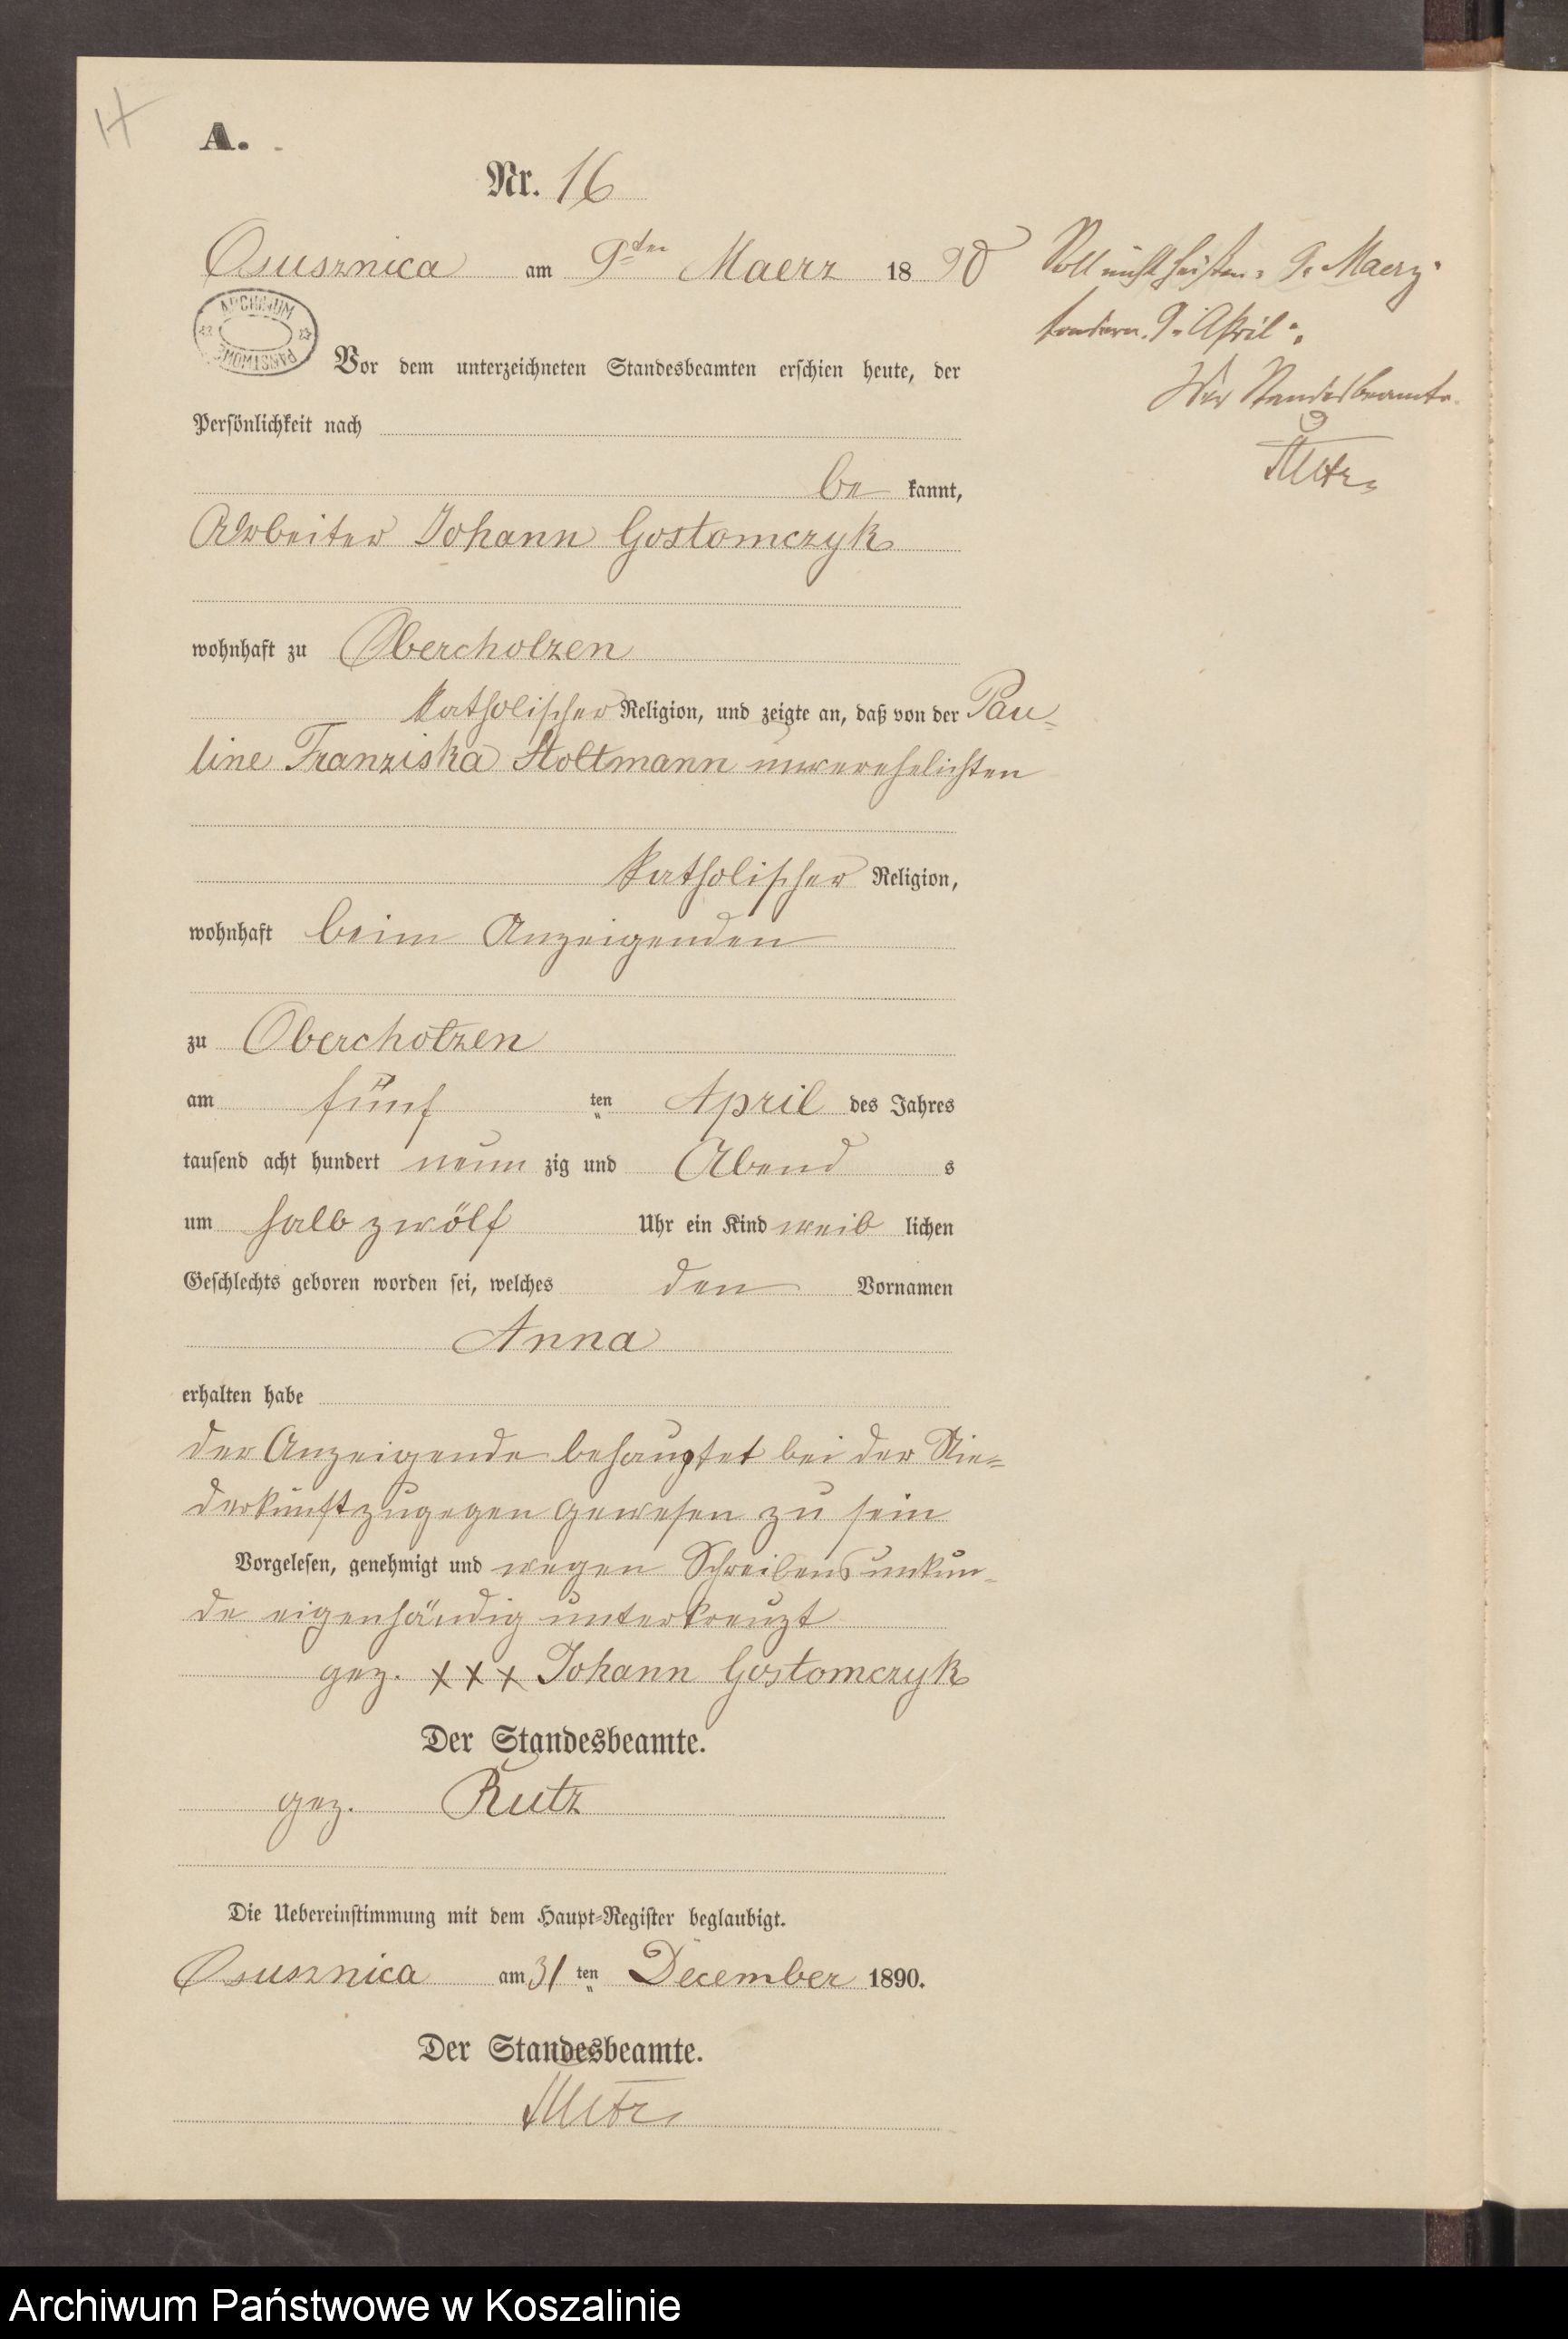 A.
Nr. 16
Osusznica am 9ten Maerz 1890
Soll nicht heißen „9. Maerz"
sondern „9. April".
Der Standesbeamte.
ARCHIWUM PAŃSTWOWE
Vor dem unterzeichneten Standesbeamten erschien heute, der
Persönlichkeit nach
be kannt,
Arbeiter Johann Gostomczyk
wohnhaft zu Obercholzen
katholischer Religion, und zeigte an, daß von der Pau-
line Franziska Stoltmann unverehelichten
katholischer Religion,
wohnhaft beim Anzeigenden
zu Obercholzen
am fünf ten April des Jahres
tausend acht hundert neun zig und Abend s
um halb zwölf Uhr ein Kind weib lichen
Geschlechts geboren worden sei, welches den Vornamen
Anna
erhalten habe
der Anzeigende behauptet bei der Nie-
derkunft zugegen gewesen zu sein
Vorgelesen, genehmigt und wegen Schreibensunkun-
de eigenhändig unterkreuzt
gez. xxx Johann Gostomczyk
Der Standesbeamte.
gez. Rutz
Die Uebereinstimmung mit dem Haupt-Register beglaubigt.
Osusznica am 31 ten December 1890.
Der Standesbeamte.
Archiwum Państwowe w Koszalinie